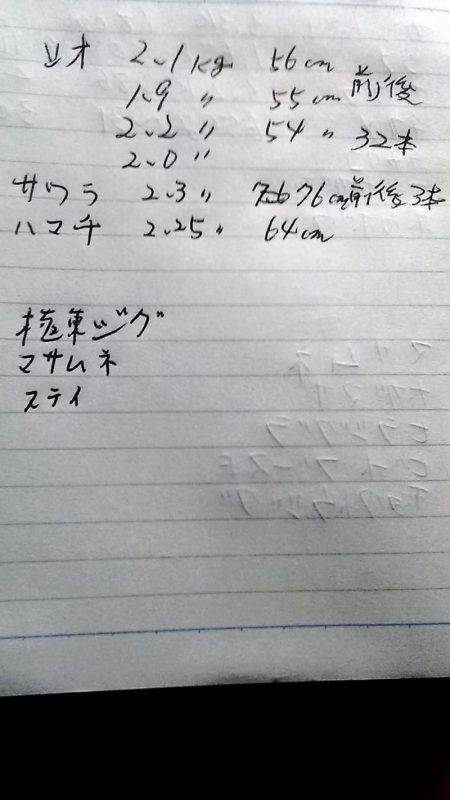 ソオ 2.1kg 56cm
1.9 〃 55cm 前後
2.2 〃 54 〃 32本
2.0 〃
サワラ 2.3 〃 76cm前後3本
ハマチ 2.25 〃 64cm
極東ジグ
マサムネ
ステイ